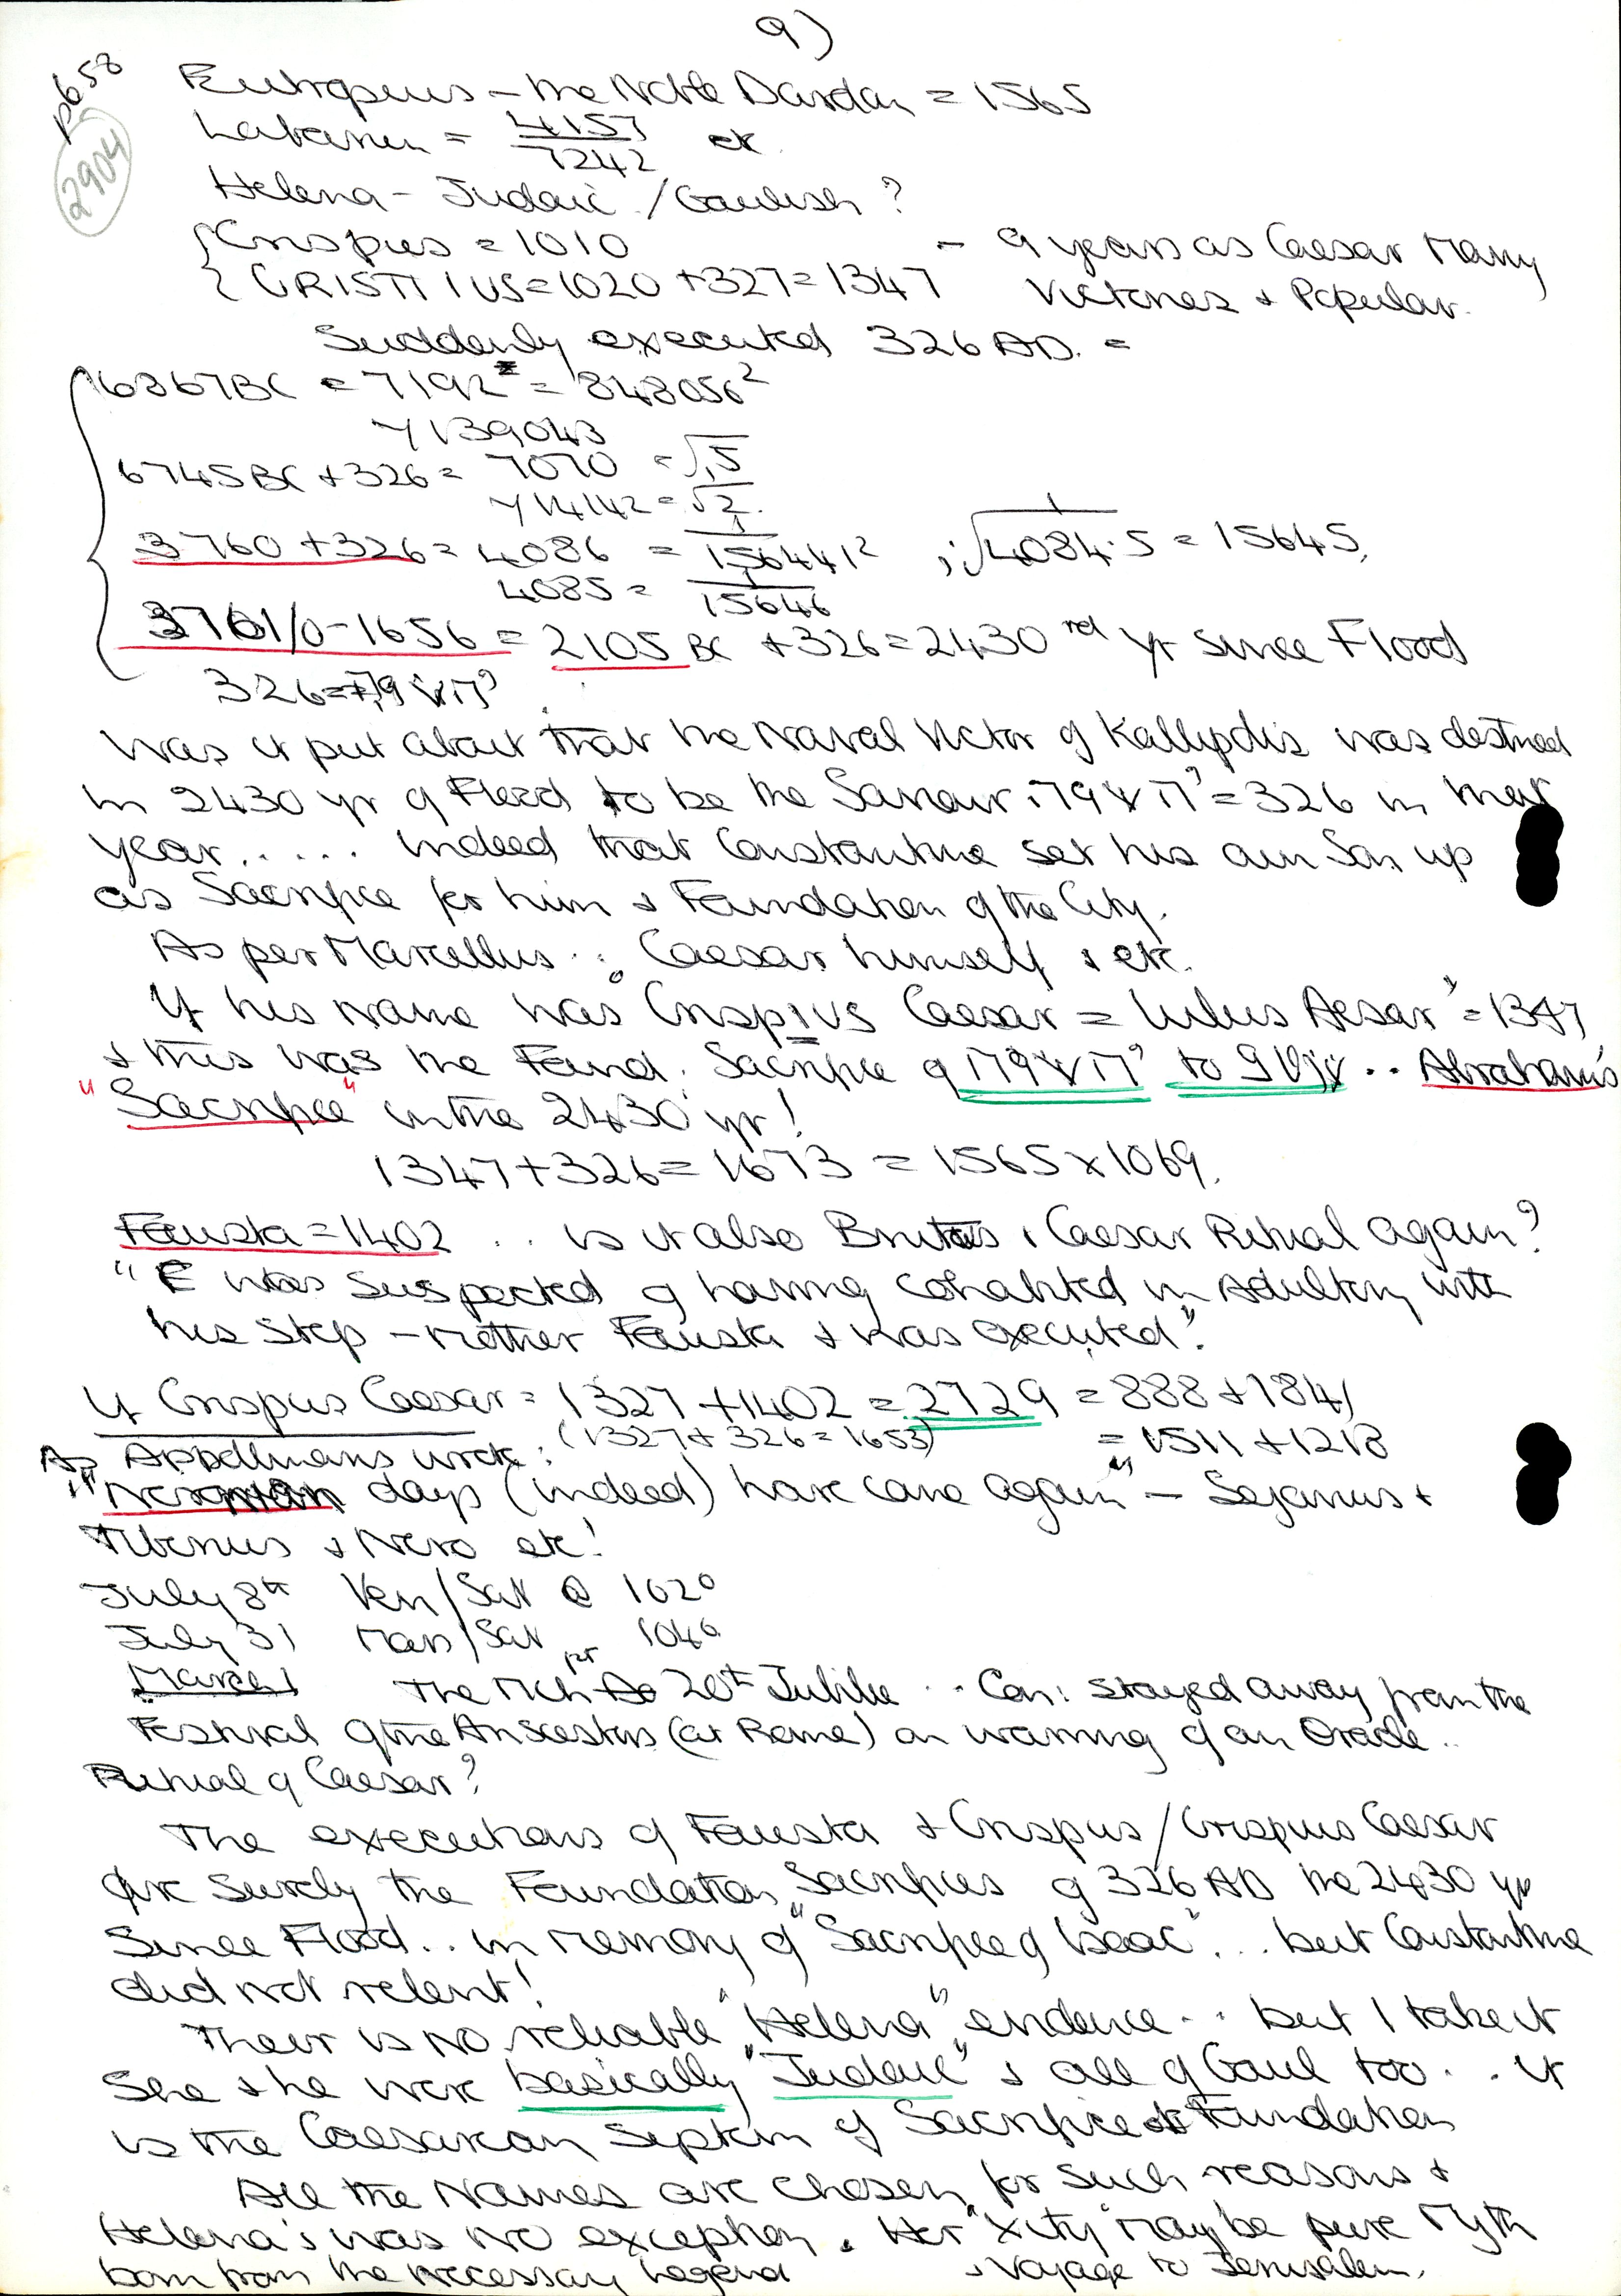 9)
p658
2904
Eutropius - the Noble Dardan = 1565
= 4157 / 7242 etc
Helena - Judaic / Gaulish ?
{ Crispus = 1010 - 9 years as Caesar Many
{ CRISTIIUS = 1020 + 327 = 1347 Victories & Popular.
Suddenly executed 326 AD. =
6867BC = 7192 = 848056²
√139043
6745BC + 326 = 7070 = √.5
√14142 = √2.
3760 + 326 = 4086 = 1/156441² , √1/4084.5 = 15645,
4085 = 1/15646
3761/0 - 1656 = 2105 BC + 326 = 2430 yr since Flood
326 =
Was it put about that the Naval Victor of Kallipolis was destined
in 2430 yr of Flood to be the Saviour = 326 in that
year..... indeed that Constantine set his own Son up
as Sacrifice for him & Foundation of the City.
As per Marcellus .. Caesar himself & etc.
If his name was "Crispius Caesar = Iulius Aesar" = 1347
& this was the Found. Sacrifice of to .. Abraham's
"Sacrifice" in the 2430 yr!
1347 + 326 = 1673 = 1565 x 1069.
Fausta = 1402 .. is it also Brutus & Caesar Ritual again?
"E was suspected of having cohabited in Adultery with
his step-mother Fausta & was executed".
If Crispus Caesar = 1327 + 1402 = 2729 = 888 + 1841
(1327 + 326 = 1653) = 1511 + 1218
As wrote:
"Neronian days (indeed) have come again" - Sejanus &
Tiberius & Nero etc!
July 8th Ven/Sat @ 102°
July 31 Mars/Sat 104°
March 1 The 20th Jubilee .. Con: stayed away from the
Festival of the Ancestors (at Rome) on warning of an Oracle..
Ritual of Caesar?
The executions of Fausta & Crispus/Crispius Caesar
are surely the Foundation Sacrifices of 326 AD the 2430 yr
Since Flood.. in memory of "Sacrifice of Isaac"... but Constantine
did not relent!
Their is no reliable "Helena" evidence .. but I take it
She & he were basically "Judaic" & all of Gaul too .. it
is the Caesarean System of Sacrifice & Foundation
All the Names are chosen for such reasons &
Helena's was no exception. Her "Xity" may be pure Myth
born from the necessary legend & voyage to Jerusalem.